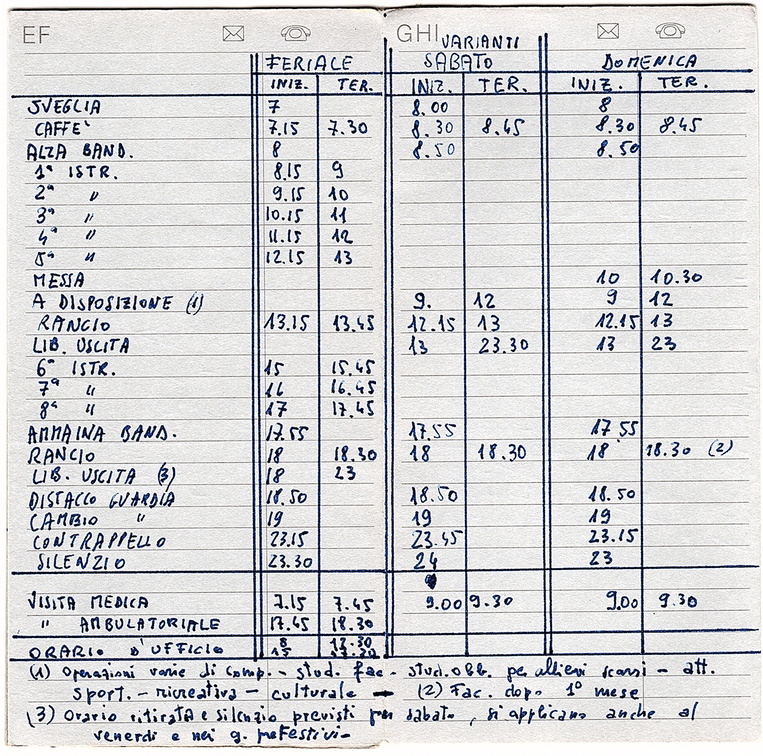 EF GHI
VARIANTI
FERIALE SABATO DOMENICA
INIZ. TER. INIZ. TER. INIZ. TER.
SVEGLIA 7 8.00 8
CAFFE' 7.15 7.30 8.30 8.45 8.30 8.45
ALZA BAND. 8 8.50 8.50
1ª ISTR. 8.15 9
2ª " 9.15 10
3ª " 10.15 11
4ª " 11.15 12
5ª " 12.15 13
MESSA 10 10.30
A DISPOSIZIONE (1) 9. 12 9 12
RANCIO 13.15 13.45 12.15 13 12.15 13
LIB. USCITA 13 23.30 13 23
6ª ISTR. 15 15.45
7ª " 16 16.45
8ª " 17 17.45
AMMAINA BAND. 17.55 17.55 17.55
RANCIO 18 18.30 18 18.30 18 18.30 (2)
LIB. USCITA (3) 18 23
DISTACCO GUARDIA 18.50 18.50 18.50
CAMBIO " 19 19 19
CONTRAPPELLO 23.15 23.45 23.15
SILENZIO 23.30 24 23
VISITA MEDICA 7.15 7.45 9.00 9.30 9.00 9.30
" AMBULATORIALE 17.45 18.30
8 12.30
ORARIO D'UFFICIO 15
(1) Operazioni varie di comp. - stud. fac. - stud. obb. per allievi scarsi - att.
sport. - ricreativa - culturale - (2) Fac. dopo 1° mese
(3) Orario ritirata e silenzio previsti per sabato, si applicano anche al
venerdi e nei g. prefestivi -